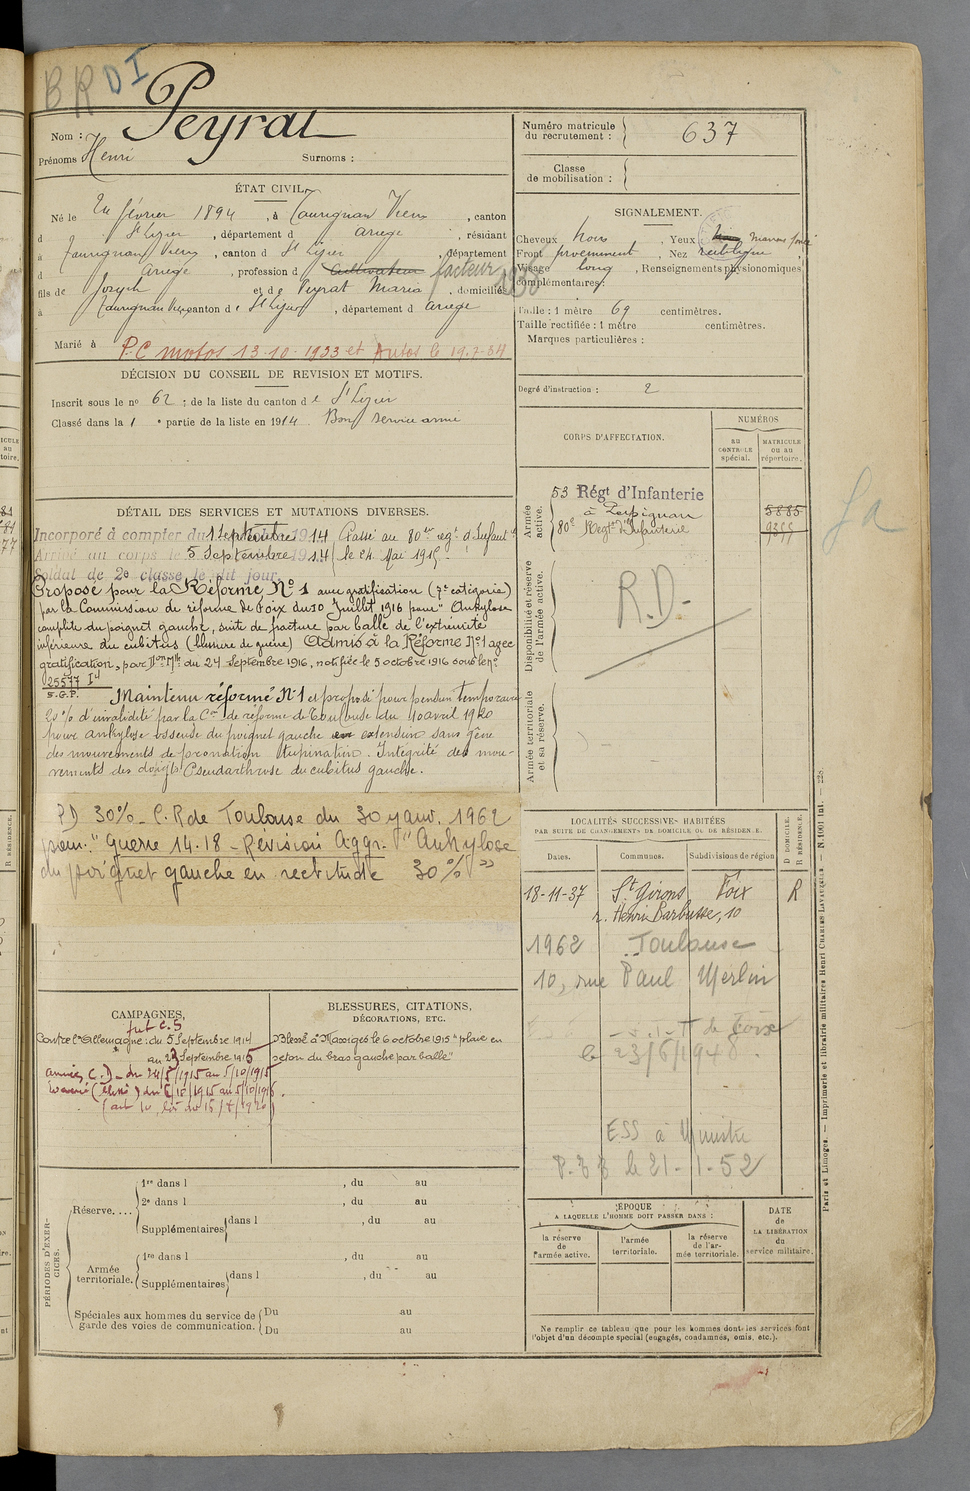 B R D I
Peyrat
Nom :
Prénoms Henri
Surnoms :
ÉTAT CIVIL.
Né le février 1894, à Taurignan Vieux, canton
d St Lizier, département d Ariège, résidant
à Taurignan Vieux, canton d St Lizier, département
d Ariège, profession d Cultivateur facteur
fils de Joseph et de Peyrat Maria, domiciliés
à Taurignan Vieux canton d e St Lizier, département d Ariège
Marié à P.C motos 13-10-1933 et Autos le 19-7-34
DÉCISION DU CONSEIL DE REVISION ET MOTIFS.
Inscrit sous le no 62 ; de la liste du canton d e St Lizier
Classé dans la 1 e partie de la liste en 1914. Bon service armé
DÉTAIL DES SERVICES ET MUTATIONS DIVERSES.
Incorporé à compter du 1 Septembre 1914 Passé au 80me regt d'Infantie
Arrivé au corps le 5 Septembre 1914 le 24 Mai 1915
Soldat de 2e classe le dit jour.
Proposé pour la Réforme No 1 avec gratification (7e catégorie)
par la Commission de réforme de Foix du 10 Juillet 1916 pour "Ankylose
complète du poignet gauche, suite de fracture par balle de l'extrémité
inférieure du cubitus (blessure de guerre) Admis à la Réforme No 1 avec
gratification, par Don Mlle du 24 Septembre 1916, notifiée le 5 octobre 1916 sous le no
25577 I4
S.G.P.
Maintenu réformé No 1 et proposé pour pension temporaire
25 % d'invalidité par la Con de réforme de Toulouse du 10 avril 1920
pour ankylose osseuse du poignet gauche en extension sans gêne
des mouvements de pronation supination. Intégrité des mou-
vements des doigts. Pseudarthrose du cubitus gauche.
PD 30% - C.R de Toulouse du 30 janv. 1962
pour "Guerre 14-18 - Révision Aggr. "Ankylose
du poignet gauche en rectitude 30% "
CAMPAGNES,
Contre l'Allemagne : du 5 Septembre 1914
au 23 Septembre 1915
BLESSURES, CITATIONS,
DÉCORATIONS, ETC.
Blessé à Massiges le 6 octobre 1915 "plaie en
séton du bras gauche par balle"
PÉRIODES D'EXERCICES.
Réserve....
1re dans l , du au
2e dans l , du au
Supplémentaires dans l , du au
Armée territoriale.
1re dans l , du au
Supplémentaires dans l , du au
Spéciales aux hommes du service de garde des voies de communication.
Du au
Du au
Numéro matricule du recrutement : 637
Classe de mobilisation :
SIGNALEMENT.
Cheveux noirs, Yeux Marron foncé
Front proéminent, Nez rectiligne
Visage long, Renseignements physionomiques
complémentaires :
Taille : 1 mètre 69 centimètres.
Taille rectifiée : 1 mètre centimètres.
Marques particulières :
Degré d'instruction : 2
CORPS D'AFFECTATION.
NUMÉROS
au CONTROLE spécial.
MATRICULE ou au répertoire.
Armée active.
53 Régt d'Infanterie 5885
à Perpignan
80e Regt d'Infanterie
Disponibilité et réserve de l'armée active.
R.D.
Armée territoriale et sa réserve.
LOCALITÉS SUCCESSIVES HABITÉES
PAR SUITE DE CHANGEMENTS DE DOMICILE OU DE RÉSIDENCE.
Dates. Communes. Subdivisions de région
D DOMICILE.
R RÉSIDENCE.
18-11-37 St Girons Foix R
r. Henri Barbusse, 10
1962 Toulouse
10, rue Paul Merlin
de Foix
le 23/6/1948.
le 21-1-52
ÉPOQUE
A LAQUELLE L'HOMME DOIT PASSER DANS :
la réserve de l'armée active.
l'armée territoriale.
la réserve de l'armée territoriale.
DATE de LA LIBÉRATION du service militaire.
Ne remplir ce tableau que pour les hommes dont les services font
l'objet d'un décompte spécial (engagés, condamnés, omis, etc.).
Paris et Limoges. — Imprimerie et librairie militaires Henri CHARLES-LAVAUZELLE.